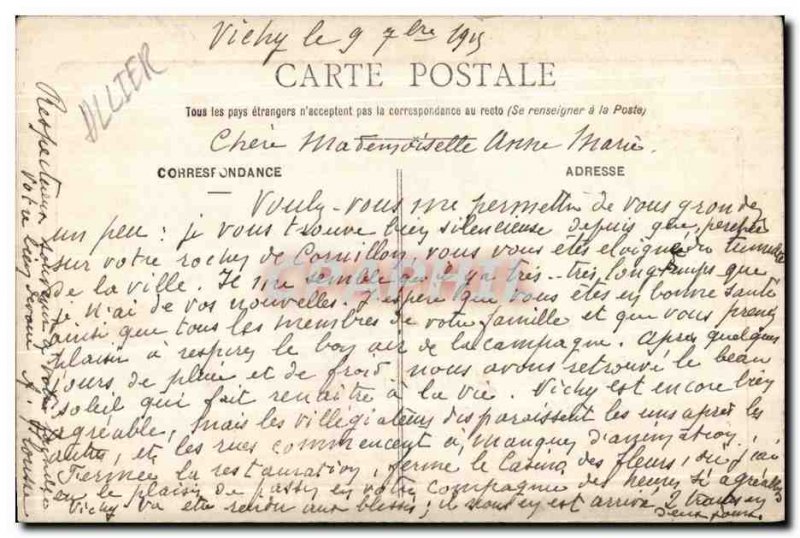 Vichy le 9 7bre 1915
ALLIER
CARTE POSTALE
Tous les pays étrangers n'acceptent pas la correspondance au recto (Se renseigner à la Poste)
Chère Mademoiselle Anne Marie.
CORRESPONDANCE
ADRESSE
Vouly-vous me permettre de vous gronder
un peu : je vous trouve bien silencieuse depuis que, perchée
sur votre rocher de Cornillon, vous vous êtes éloignée du tumulte
de la ville. Il me semble qu'il y a très-très longtemps que
je n'ai de vos nouvelles. J'espère que vous êtes en bonne santé
ainsi que tous les membres de votre famille et que vous prenez
plaisir à respirer le bon air de la campagne. Après quelques
jours de pluie et de froid nous avons retrouvé le beau
soleil qui fait renaître à la vie. Vichy est encore bien
agréable, mais les villégiateurs disparaissent les uns après les
autres, et les rues commencent à manquer d'animation.
Fermée la restauration, fermé le Casino des fleurs, où j'ai
eu le plaisir de passer en votre compagnie des heures si agréables
Vichy va être rendu aux blessés; il nous en est arrivé 2 trains en
deux jours.
Respectueux souvenir à votre famille
Votre bien dévoué